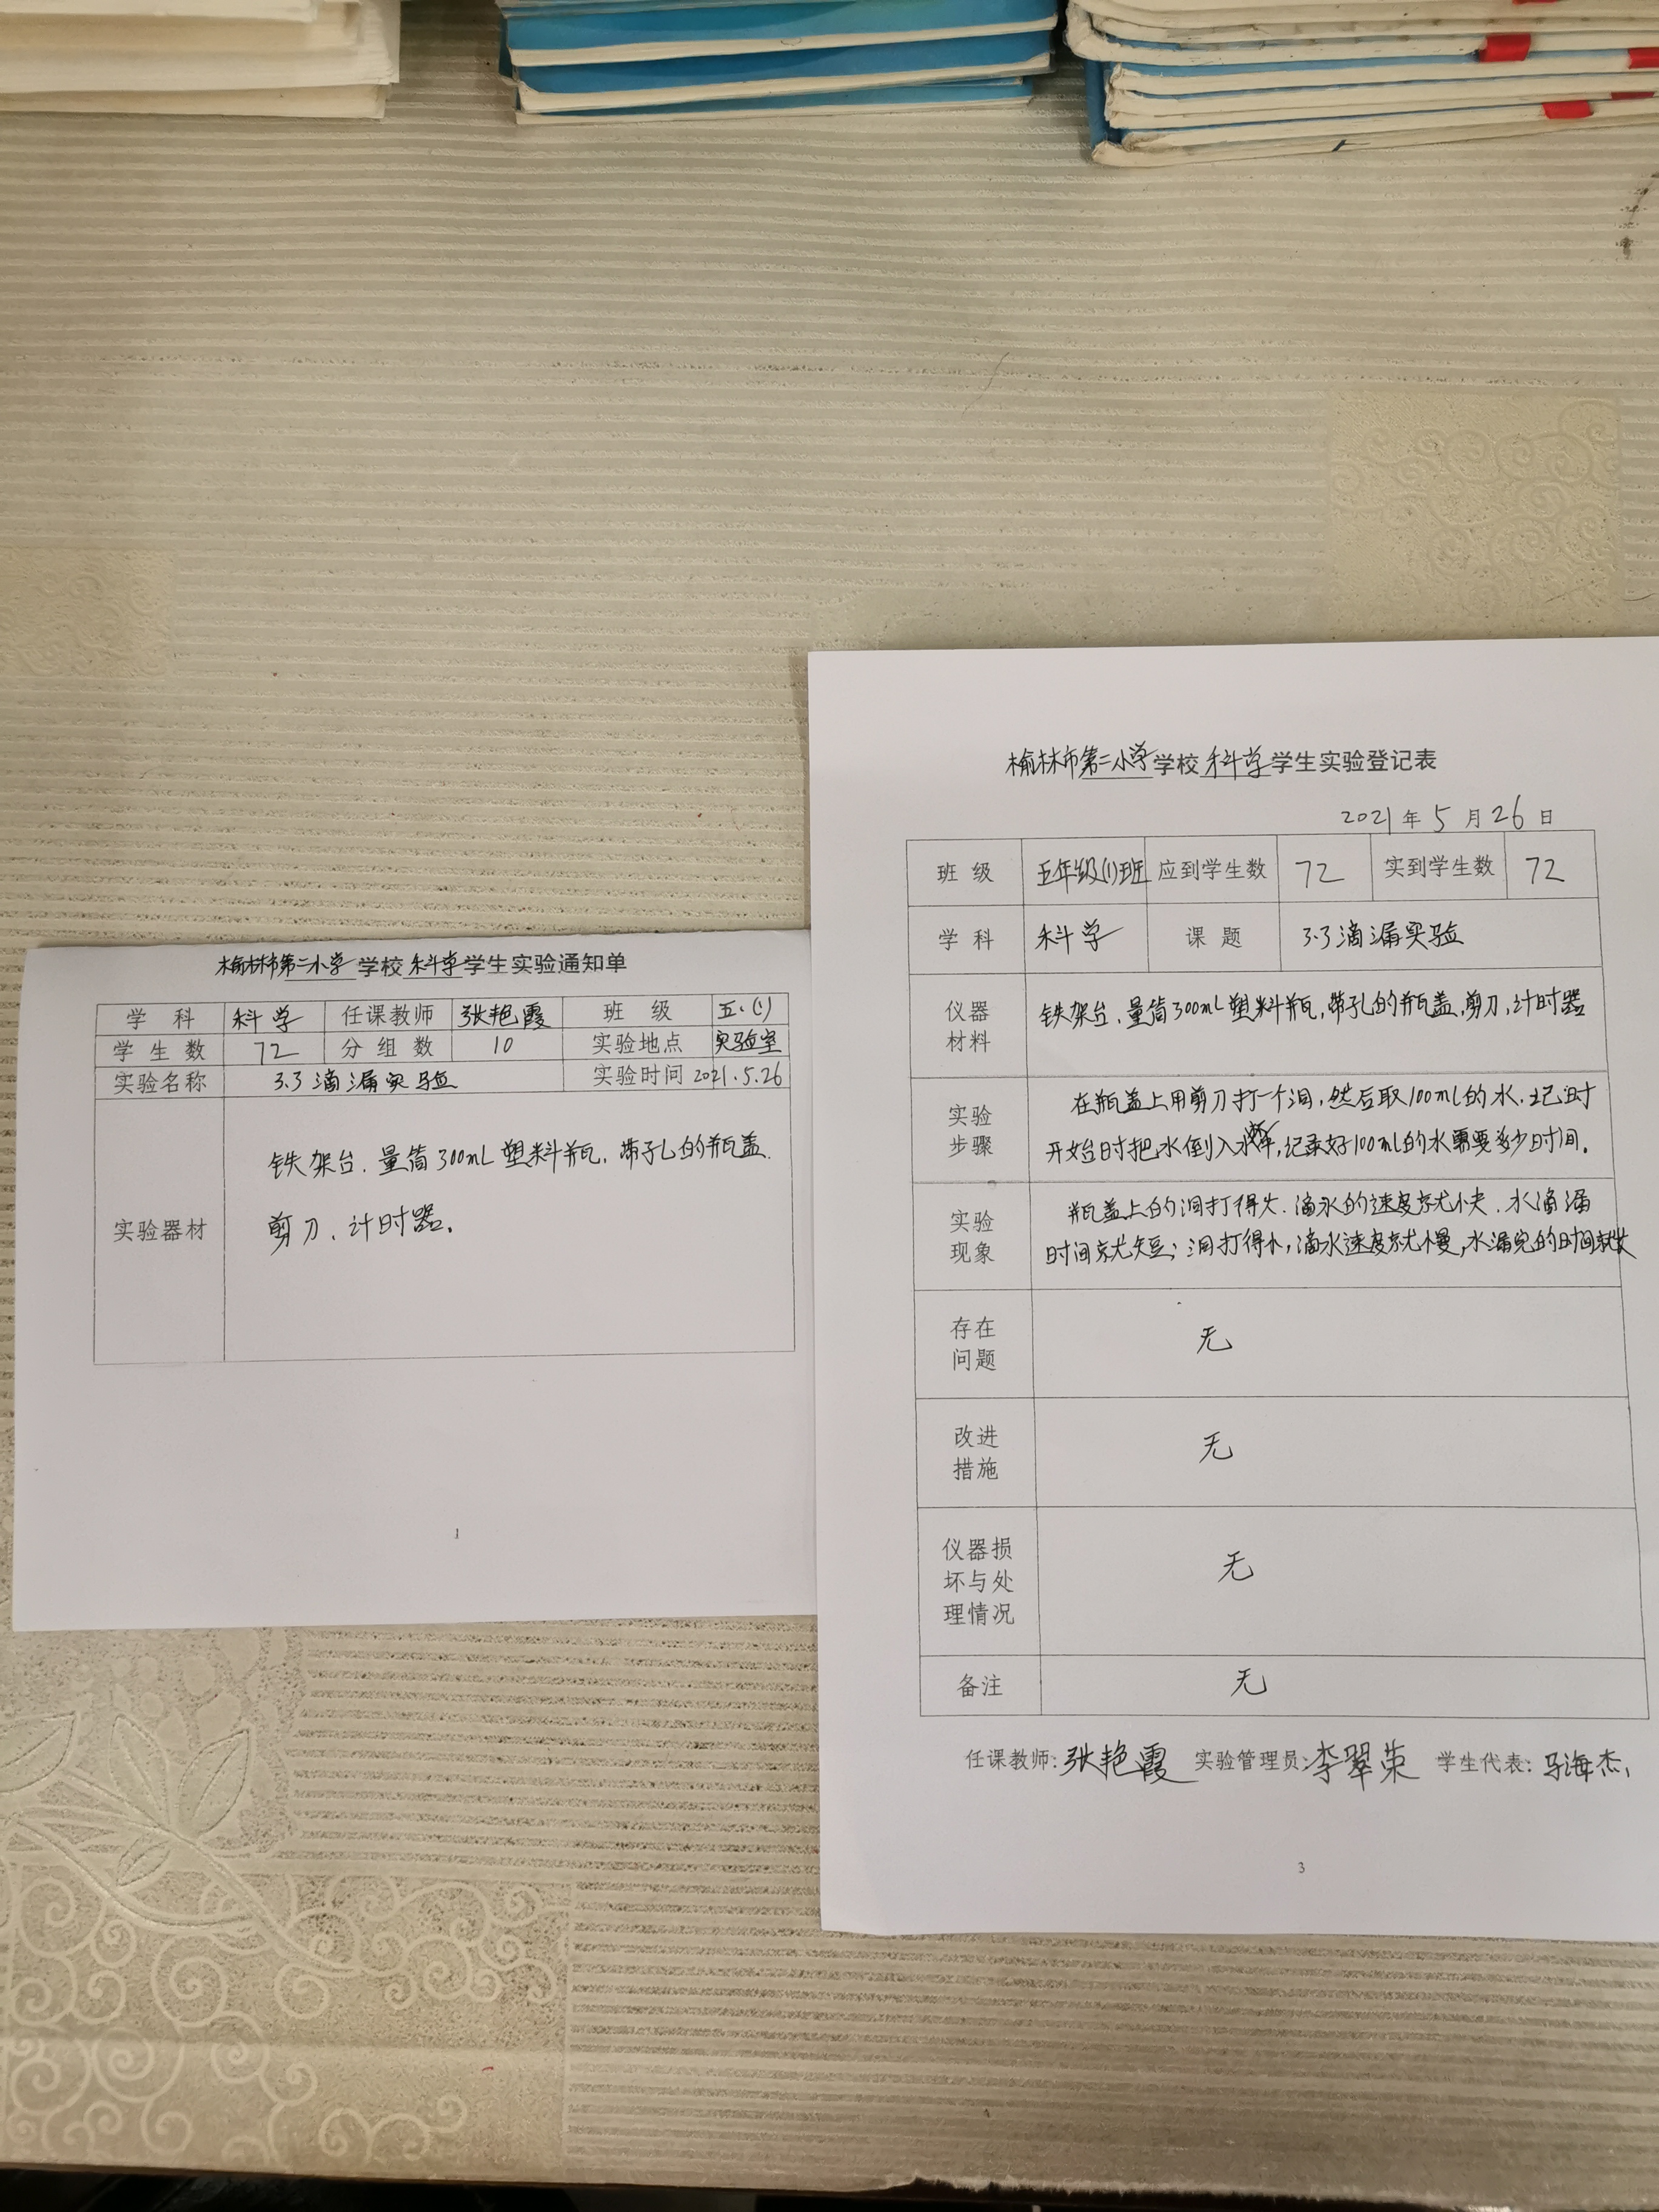 榆林市第二小学学校科学学生实验通知单
学科 科学 任课教师 张艳霞 班级 五.(1)
学生数 72 分组数 10 实验地点 实验室
实验名称 3.3滴漏实验 实验时间 2021.5.26
铁架台、量筒300mL塑料瓶、带孔的瓶盖、
实验器材 剪刀、计时器。
1
榆林市第二小学学校科学学生实验登记表
2021年5月26日
班级 五年级(1)班 应到学生数 72 实到学生数 72
学科 科学 课题 3.3滴漏实验
仪器
材料
铁架台、量筒300mL塑料瓶,带孔的瓶盖,剪刀,计时器
实验
步骤
在瓶盖上用剪刀打一个洞,然后取100mL的水.记时
开始时把水倒入水,记录好100mL的水需要多少时间。
实验
现象
瓶盖上的洞打得大.滴水的速度就快.水滴漏
时间就短;洞打得小,滴水速度就慢,水漏完的时间就长
存在
问题
无
改进
措施
无
仪器损
坏与处
理情况
无
备注 无
任课教师:张艳霞 实验管理员:李翠荣 学生代表:马海杰
3